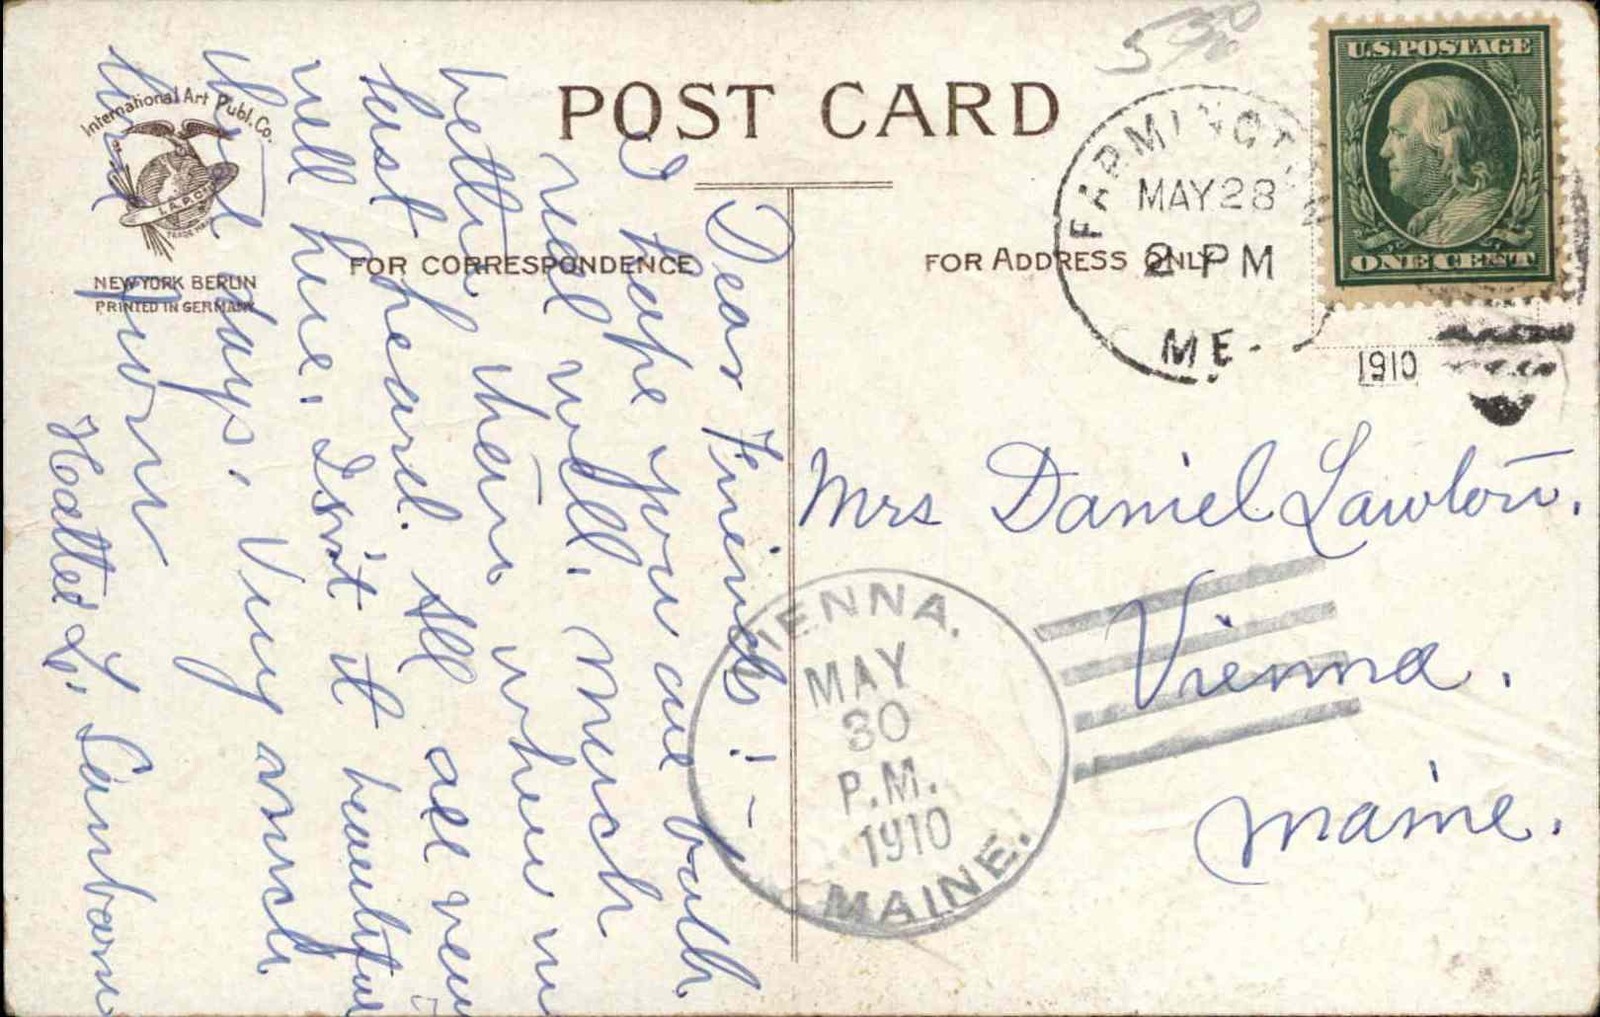 5
International Art Publ. Co.
I.A.P.CO.
TRADE MARK
NEW YORK BERLIN
PRINTED IN GERMANY
POST CARD
FOR CORRESPONDENCE
FOR ADDRESS ONLY
U.S. POSTAGE
ONE CENT
FARMINGTON
MAY 28
2 PM
ME.
1910
Dear Friends! -
I hope you are both
real well. Much
better than when we
last heard. All are very
well here. Isn't it beautiful
these days. Very much
Hattie L. Sanborn
Mrs Daniel Lawton.
Vienna.
Maine.
VIENNA.
MAY
30
P.M.
1910
MAINE.